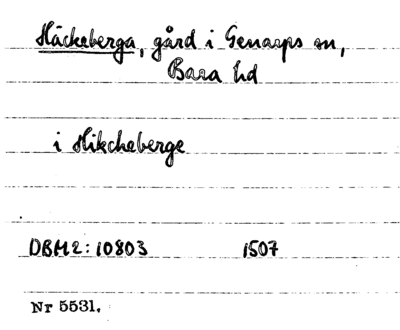 Häckeberga, gård i Genarps sn,
Bara hd
i Hikcheberge
DBH2:10803 1507
Nr 5531.